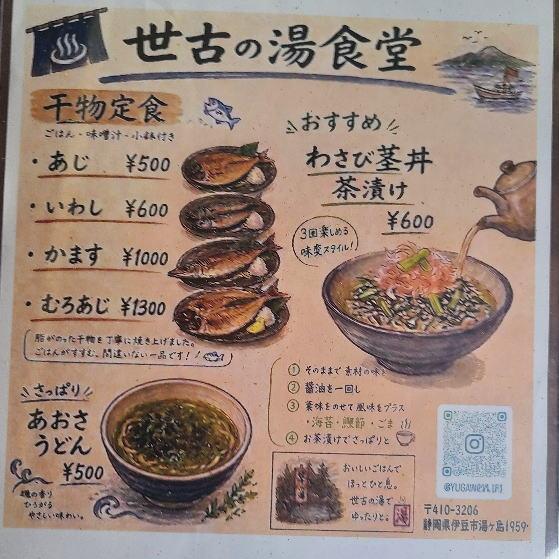 世古の湯食堂
干物定食
ごはん・味噌汁・小鉢付き
・あじ ¥500
・いわし ¥600
・かます ¥1000
・むろあじ ¥1300
脂がのった干物を丁寧に焼き上げました。
ごはんがすすむ、間違いない一品です！
おすすめ
わさび茎丼
茶漬け
¥600
3回楽しめる
味変スタイル!
① そのままで素材の味を
② 醤油を一回し
③ 薬味をのせて風味をプラス
・海苔・鰹節・ごま
④ お茶漬けでさっぱりと
さっぱり
あおさ
うどん
¥500
磯の香り
ひろがる
やさしい味わい。
おいしいごはんで、
ほっとひと息。
世古の湯で
ゆったりと。
湯
〒410-3206
静岡県伊豆市湯ヶ島1959-